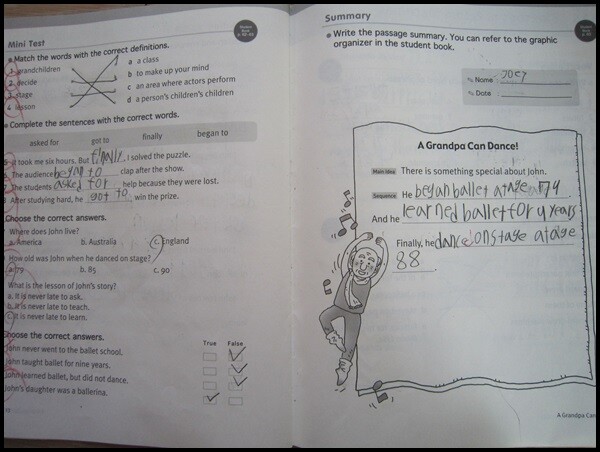 Mini Test
Match the words with the correct definitions.
1. grandchildren
a a class
2. decide
b to make up your mind
3. stage
c an area where actors perform
4. lesson
d a person's children's children
Complete the sentences with the correct words.
asked for got to finally began to
It took me six hours. But finally, I solved the puzzle.
The audience began to clap after the show.
The students asked for help because they were lost.
After studying hard, he got to win the prize.
Choose the correct answers.
Where does John live?
a. America b. Australia c. England
How old was John when he danced on stage?
a. 79 b. 85 c. 90
What is the lesson of John's story?
a. It is never late to ask.
b. It is never late to teach.
c. It is never late to learn.
Choose the correct answers.
True False
John never went to the ballet school.
John taught ballet for nine years.
John learned ballet, but did not dance.
John's daughter was a ballerina.
Summary
Write the passage summary. You can refer to the graphic
organizer in the student book.
Name : Joey
Date :
A Grandpa Can Dance!
Main Idea There is something special about John.
Sequence He began ballet at age 79
And he learned ballet for 9 years
Finally, he dance on stage at age
88.
A Grandpa Can